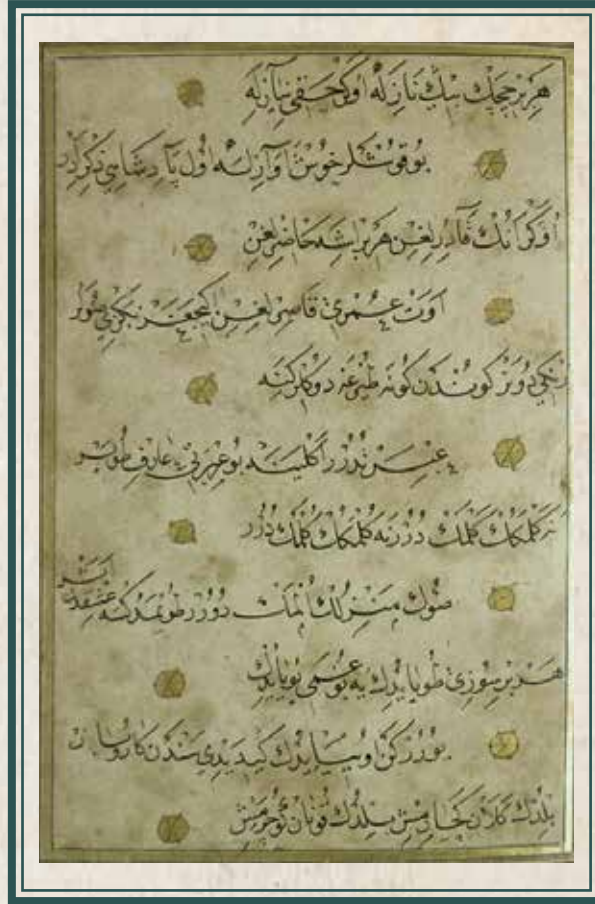 هر بر چچك بيك ناز له اوكر حقى نياز له
بو قوشلر خوش آواز له اول پادشاهى ذكر ايدر
اوكر انك قادرلغن هر بر ايشه حاضرلغن
اوت عمرى قاصرلغن اكيجغز بكزى صولر
رنكى دونر كوندن كونه طپرغه دوكلر كنه
عبرتدرر اكلينه بو عبرتى عارف طويار
نه كلمكك كلمك درر نه كلمكك كلمك درر
صوك منزلك اولمك درر طويمدكسه عشقدن اثر
هر بر سوزى طويايدك يه بو غمى يويايدك
كيديدى سندن كار و بار
بلدك كلان كچرمش بلدك قونان كوچرمش